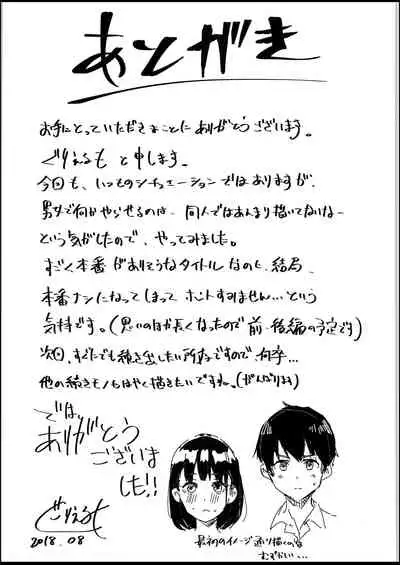 あとがき
お手にとっていただきまことにありがとうございます。
ぐりえるもと申します。
今回も、いつものシチュエーションではありますが、
男女で何かやらせるのは、同人ではあんまり描いてないなー
という気がしたので、やってみました。
すごく本番がありそうなタイトルなのに、結局、
本番ナシになってしまって ホントすみません…という
気持です。(思いのほか長くなったので前・後編の予定です)
次回、すぐにでも続き出したい所存ですので何卒…
他の続きモノもはやく描きたいですね。(がんばります)
では、
ありがとう
ございま
した!!
ぐりえるも
2018.08
最初のイメージ通り描くのは
むずかしい…